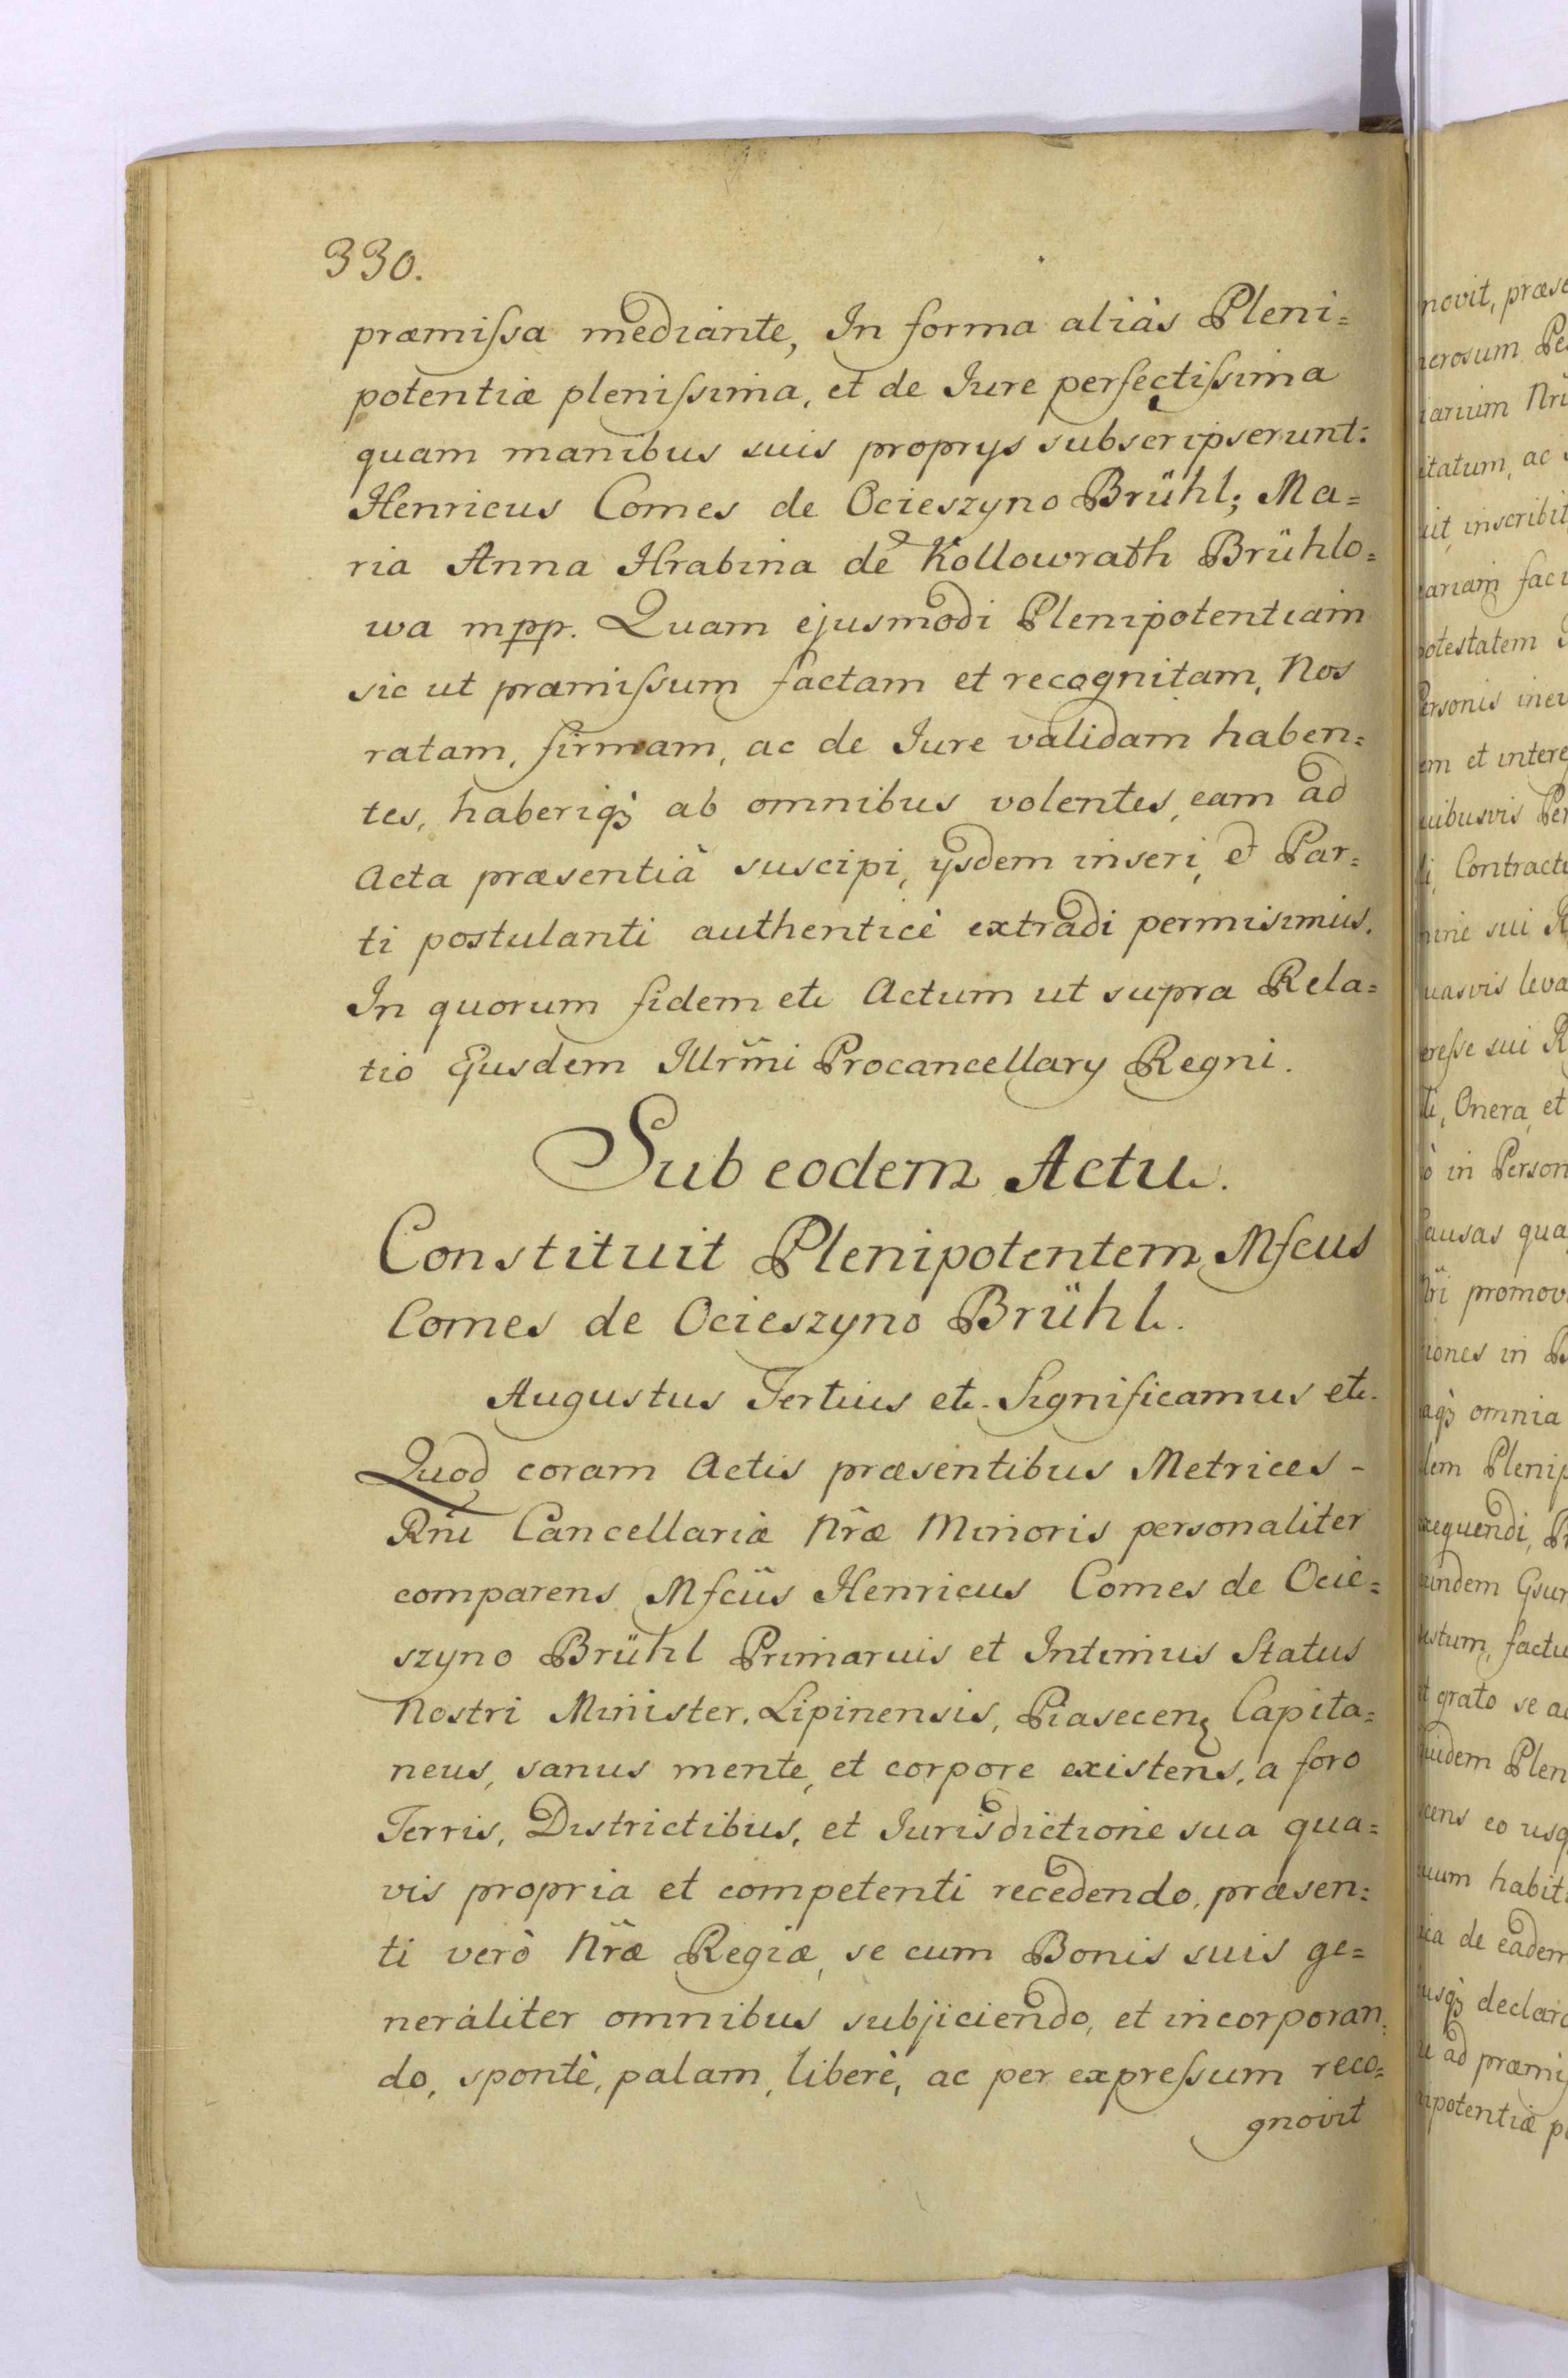 330.
præmiſsa mediante, In forma aliàs Pleni=
potentiæ pleniſsima, et de Iure perfectiſsima
quam manibus suis proprys subscripserunt:
Henricus Comes de Ocieszyno Brühl; Ma=
ria Anna Hrabina de Kollowrath Brühlo=
wa mpp. Quam ejusmodi Plenipotentiam
sic ut præmiſsum factam et recognitam, Nos
ratam, firmam, ac de Iure validam haben=
tes, haberiq3 ab omnibus volentes, eam ad
Acta præsentia suscipi, ysdem inseri, et Par=
ti postulanti authenticè extradi permisimus.
In quorum fidem etc Actum ut supra Rela=
tio Ejusdem Illrm̃i Procancellary Regni.
Sub eodem Actu.
Constituit Plenipotentem Mfcus
Comes de Ocieszyno Brühl.
Augustus Tertius etc. Significamus etc.
Quod coram Actis præsentibus Metrices -
Rñi Cancellariæ Nr̃æ Minoris personaliter
comparens Mfcũs Henricus Comes de Ocie=
szyno Brühl Primarius et Intimus Status
Nostri Minister, Lipinensis, Piasecen Capita=
neus, sanus mente, et corpore existens, a foro
Terris, Districtibus, et Iurisdictione sua qua=
vis propria et competenti recedendo, præsen=
ti verò Nr̃æ Regiæ, se cum Bonis suis ge=
neraliter omnibus subjiciendo, et incorporan=
do, spontè, palam, liberè, ac per expreſsum reco=
gnovit
novit, præse
nerosum Pe
iarium Nri
itatum, ac
uit, inscribit
ariam faci
potestatem
Personis
em et intere
uibusvis Per
i, Contractu
uasvis leva
ereſse sui R
Onera, et
ò in Person
Causas qua
Nr̃i promov
iones in
aq3 omnia
dem Plenip
xequendi,
undem Gsum
estum, factu
et grato se
uidem Plen
cens eo usq
uum habit
ia de eadem
usq3 declara
u ad præmiſ
nipotentiæ